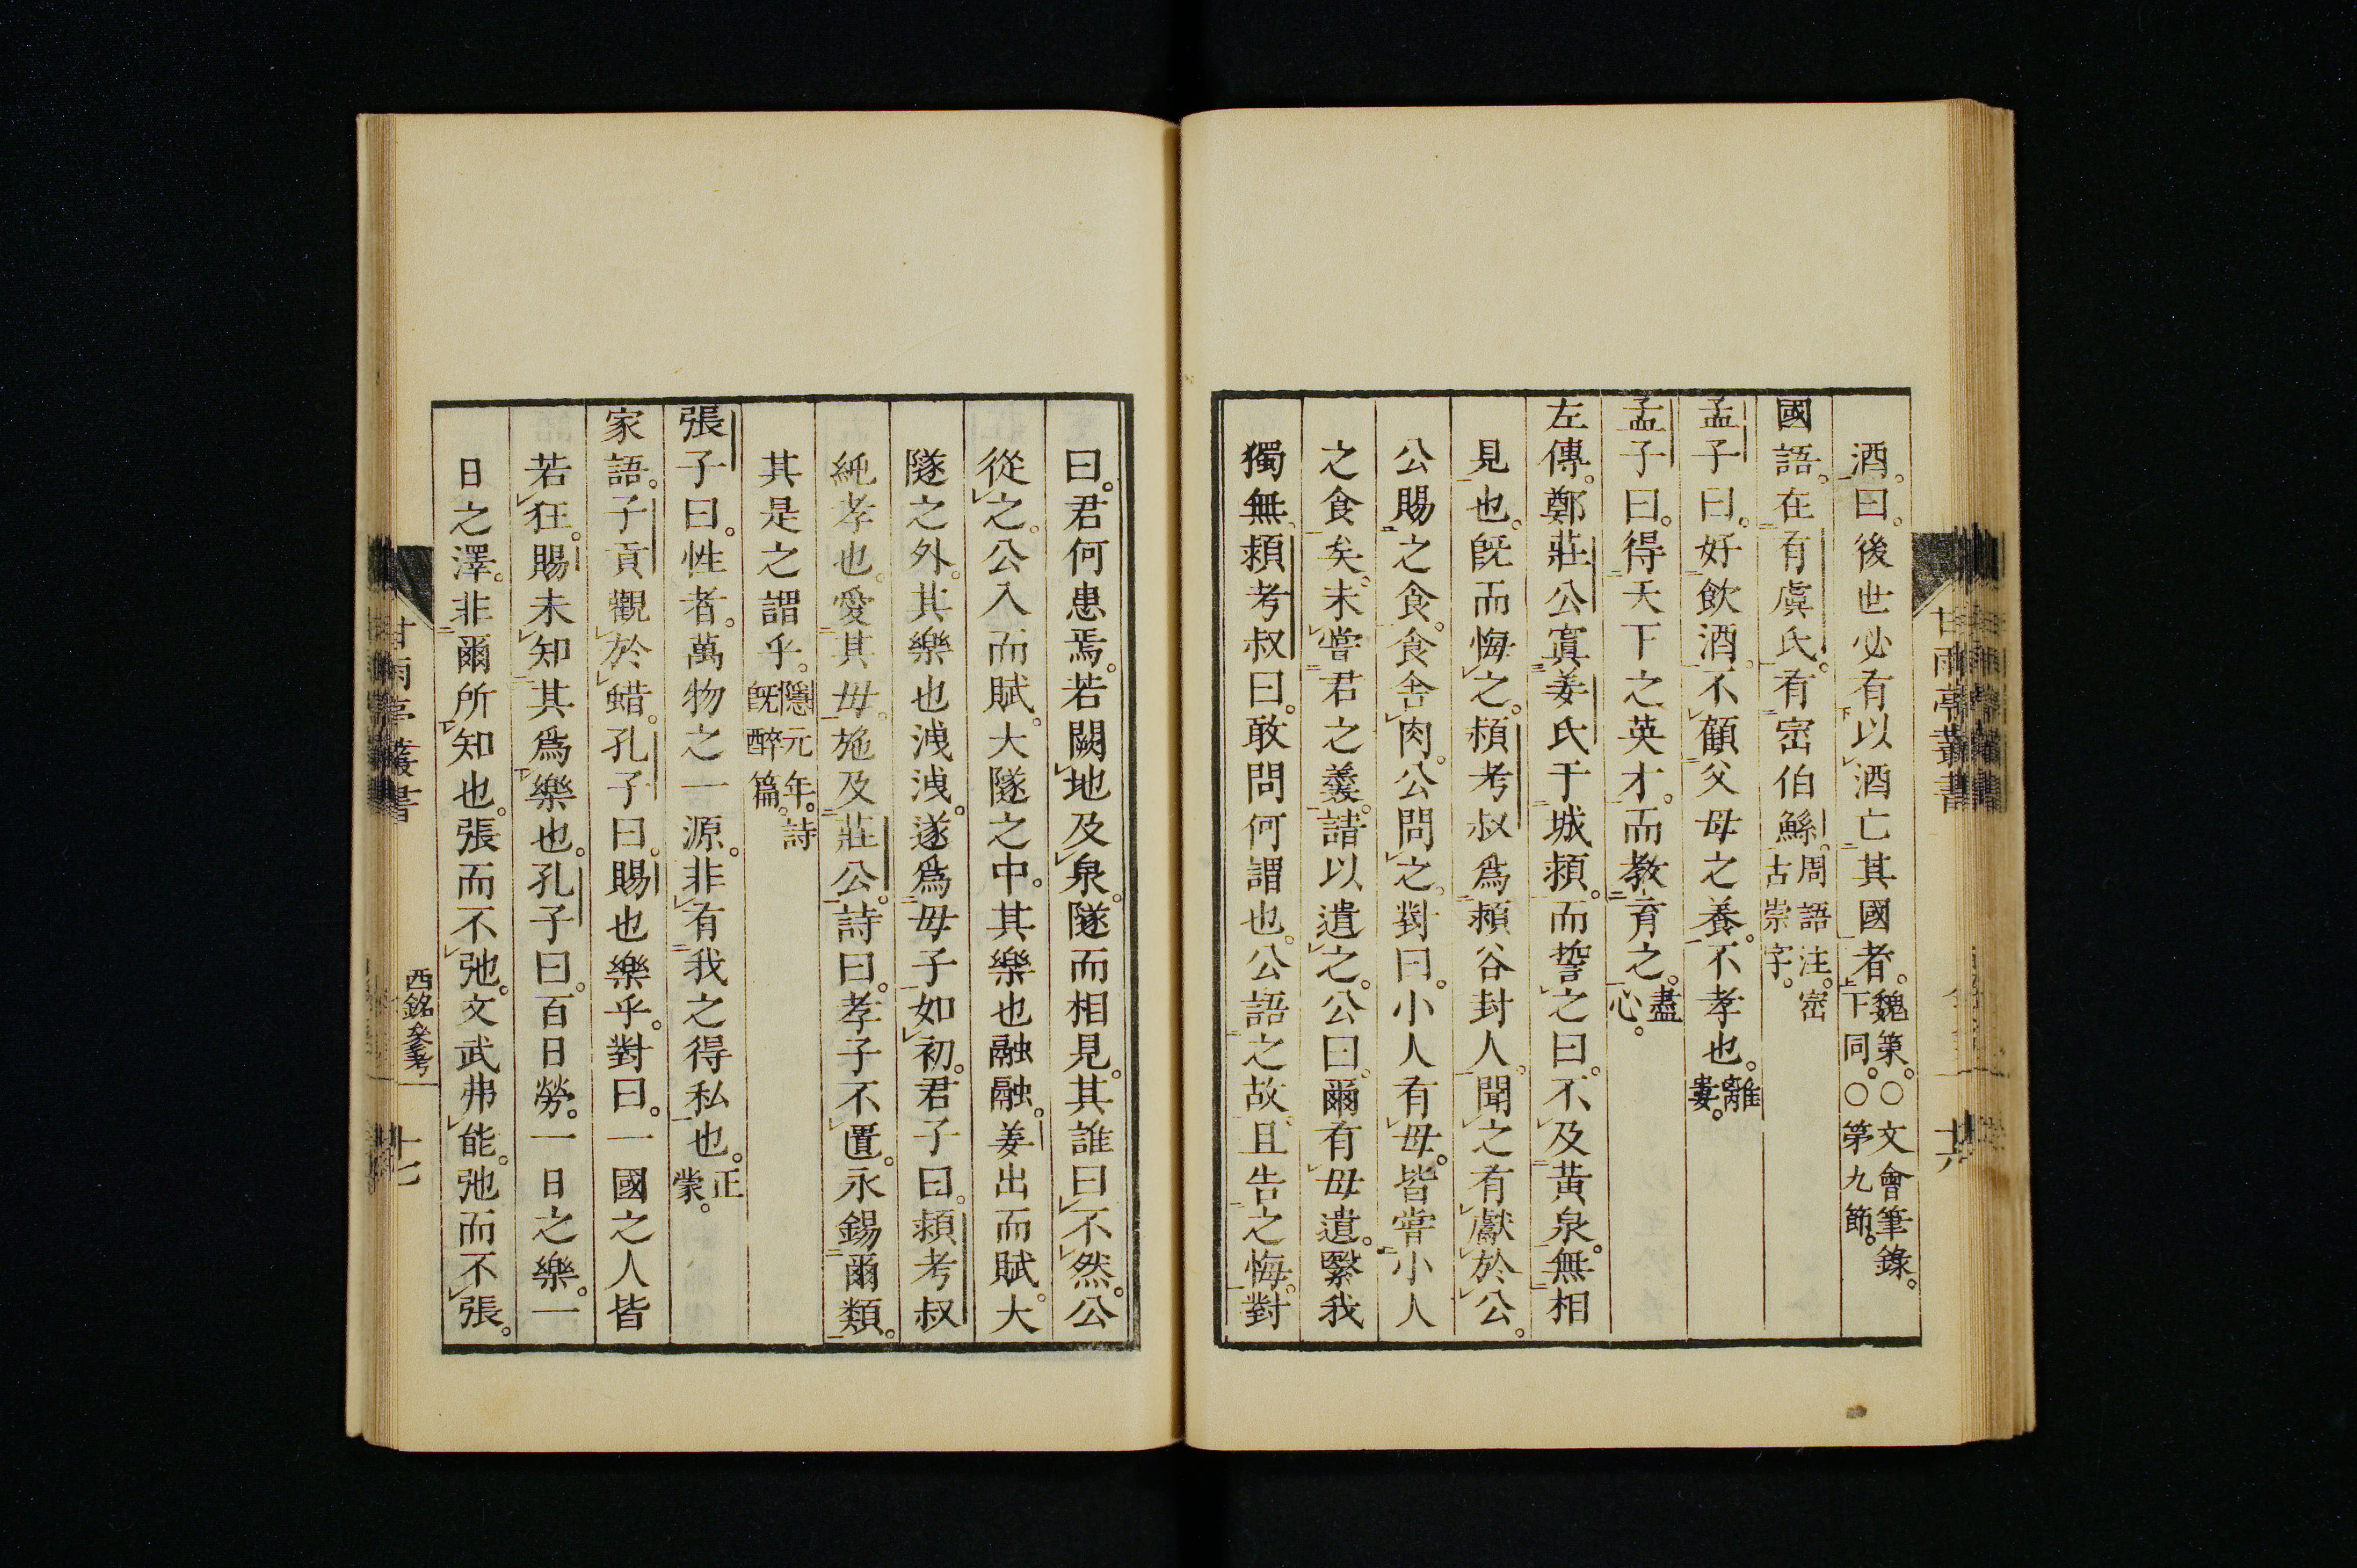 酒。曰。後世必有以酒亡其國者。魏策。○文會筆錄。下同。○第九節。
國語。在有虞氏。有崈伯鯀。周語注。崈古崇字。
孟子曰。好飲酒。不顧父母之養。不孝也。離婁。
孟子曰。得天下之英才。而教育之。盡心。
左傳。鄭莊公寘姜氏于城潁。而誓之曰。不及黃泉。無相
見也。既而悔之。潁考叔爲潁谷封人。聞之有獻於公。
公賜之食。食舍肉。公問之。對曰。小人有母。皆嘗小人
之食矣。未嘗君之羹。請以遺之。公曰。爾有母遺。繄我
獨無。潁考叔曰。敢問何謂也。公語之故。且告之悔。對
曰。君何患焉。若闕地及泉。隧而相見。其誰曰不然。公
從之。公入而賦。大隧之中。其樂也融融。姜出而賦。大
隧之外。其樂也洩洩。遂爲母子如初。君子曰。潁考叔
純孝也。愛其母。施及莊公。詩曰。孝子不匱。永錫爾類。
其是之謂乎。隱元年。詩既醉篇。
張子曰。性者。萬物之一源。非有我之得私也。正蒙。
家語。子貢觀於蜡。孔子曰。賜也樂乎。對曰。一國之人皆
若狂。賜未知其爲樂也。孔子曰。百日勞。一日之樂。一
日之澤。非爾所知也。張而不弛。文武弗能。弛而不張。
甘雨亭叢書
甘雨亭叢書
西銘參考
十七